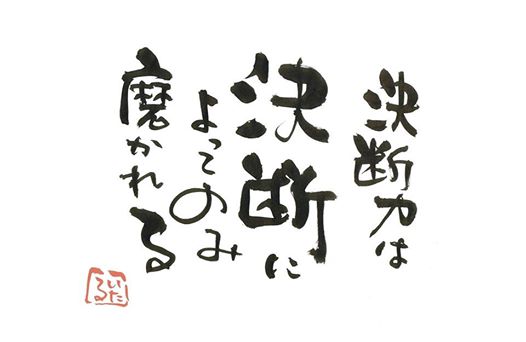 決断力は
決断に
よってのみ
磨かれる
いたる